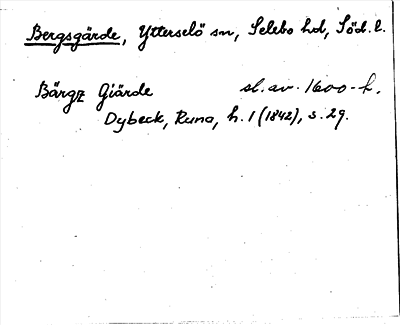 Bergsgärde, Ytterselö sn, Selebo hd, Söd. l.
Bärgz Giärde sl. av. 1600-t.
Dybeck, Runa, h. 1 (1842), s. 29.